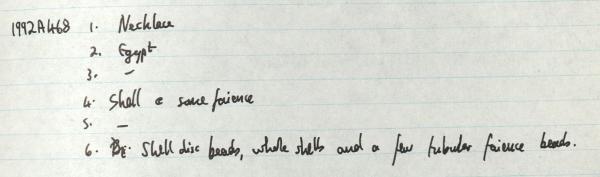 1992A468 1. Necklace
2. Egypt
3. –
4. Shell & some faience
5. –
6. Shell disc beads, whole shells and a few tubular faience beads.